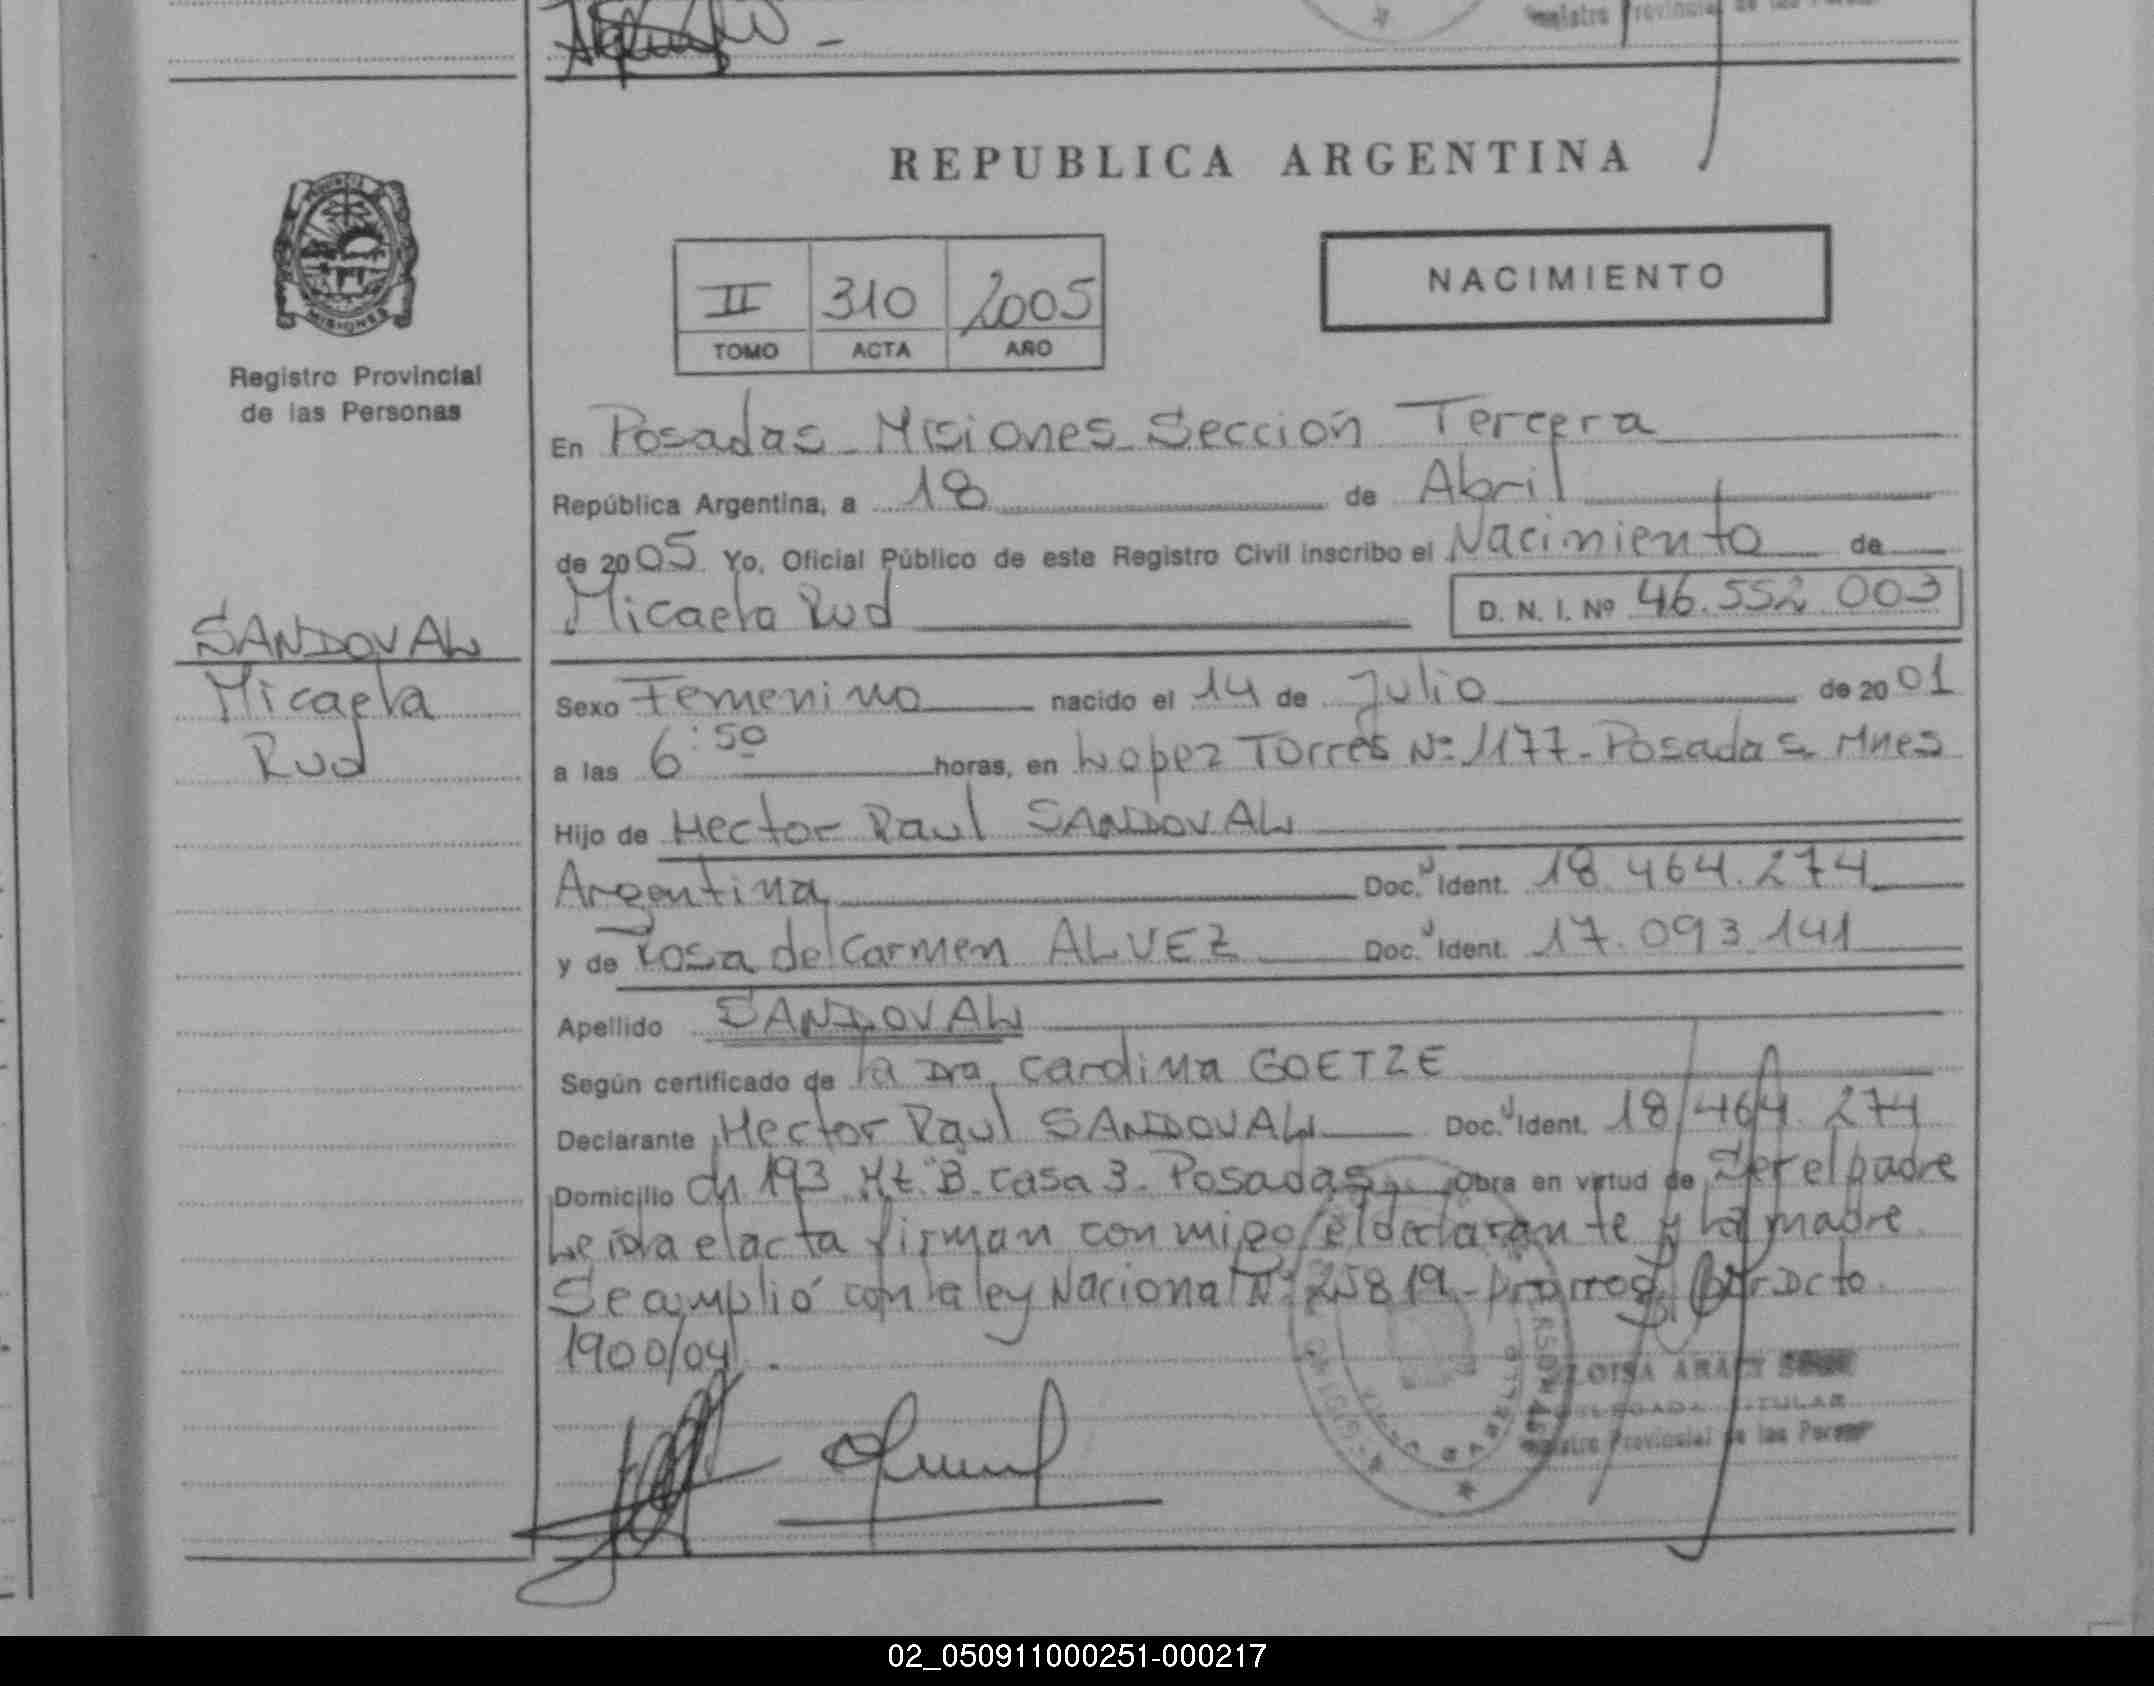 Registro Provincial de las Personas
REPUBLICA ARGENTINA
II 310 2005
TOMO ACTA AÑO
NACIMIENTO
MISIONES
Registro Provincial
de las Personas
En Posadas - Misiones - Sección Tercera
República Argentina, a 18 de Abril
de 2005 Yo, Oficial Público de este Registro Civil inscribo el Nacimiento de
Micaela Rud D. N. I. Nº 46.552.003
SANDOVAL
Micaela
Rud
Sexo Femenino nacido el 14 de Julio de 2001
a las 6:50 horas, en Lopez Torres Nº 1177 - Posadas Mnes
Hijo de Hector Raul SANDOVAL
Argentina Doc. Ident. 18.464.274
y de Rosa del Carmen ALVEZ Doc. Ident. 17.093.141
Apellido SANDOVAL
Según certificado de la Dra. Cardina GOETZE
Declarante Hector Raul SANDOVAL Doc. Ident. 18.464.274
Domicilio Ch 193 Mz. B. Casa 3 - Posadas Obra en virtud de Ser el padre
Leida el acta firman conmigo el declarante y la madre
Se amplió con la ley Nacional Nº 25819 - prorrog. por Dcto
1900/04.
Registro Provincial de las Person
02_050911000251-000217